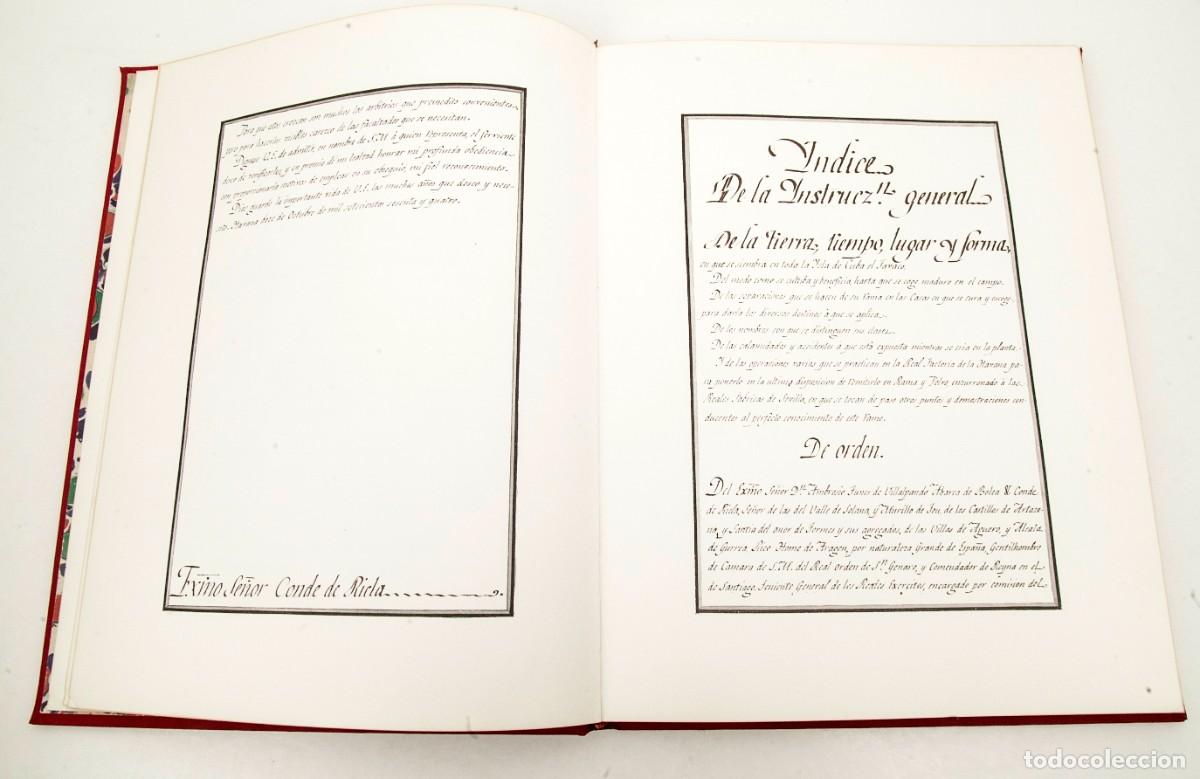 Pero que etas crezcan son muchos los arbitrios que premedito convenientes
que para hacerlos visibles carezco de las facultades que se necesitan.
Dignese V.E. de admitir, en nombre de S.M. à quien representa, el
deseo de verificarlas, y en premio de mi lealtad honrar mi profunda obediencia
con proporcionarla motivos de emplear en su obsequio, mi fiel reconocimiento.
Dios guarde la importante vida de V.E. los muchos años que deseo y nece-
sito. Havana doce de Octubre de mil setecientos sesenta y quatro.
Exm̃o Señor Conde de Ricla
Yndice
De la Instrucz.n general
De la tierra, tiempo, lugar y forma,
en que se siembra en toda la Ysla de Cuba el Tavaco.
Del modo como se cultiva y beneficia, hasta que se coge maduro en el campo.
De las separaciones que se hacen de su Rama en las Casas en que se cura y escoge
para darla los diversos destinos à que se aplica.
De los nombres con que se distinguen sus clases.
De las calamidades y accidentes à que està expuesta mientras se cria en la planta.
Y de las operaciones varias, que se practican en la Real Factoria de la Havana pa-
ra ponerlo en la ultima disposicion de remitirlo en Rama y Polvo, enzurronado à las
Reales Fabricas de Sevilla, en que se tocan de paso otros puntos y demostraciones con-
ducentes al perfecto conocimiento de este Ramo.
De orden.
Del Exm̃o Señor D.n Ambrosio Funes de Villalpando Abarca de Bolea &. Conde
de Ricla, Señor de las del Valle de Solana, y Murillo de Gou, de los Castillos de Artaso-
na, y Santia del onor de Fornes y sus agregados, de las Villas de Aguero, y Alcala
de Gurrea, Rico Home de Aragon, por naturaleza Grande de España, Gentilhombre
de Camara de S.M. del Real orden de S.n Genaro, y Comendador de Reyna en el
de Santiago, Teniente General de los Reales Exercitos, encargado por comision del
todocoleccion